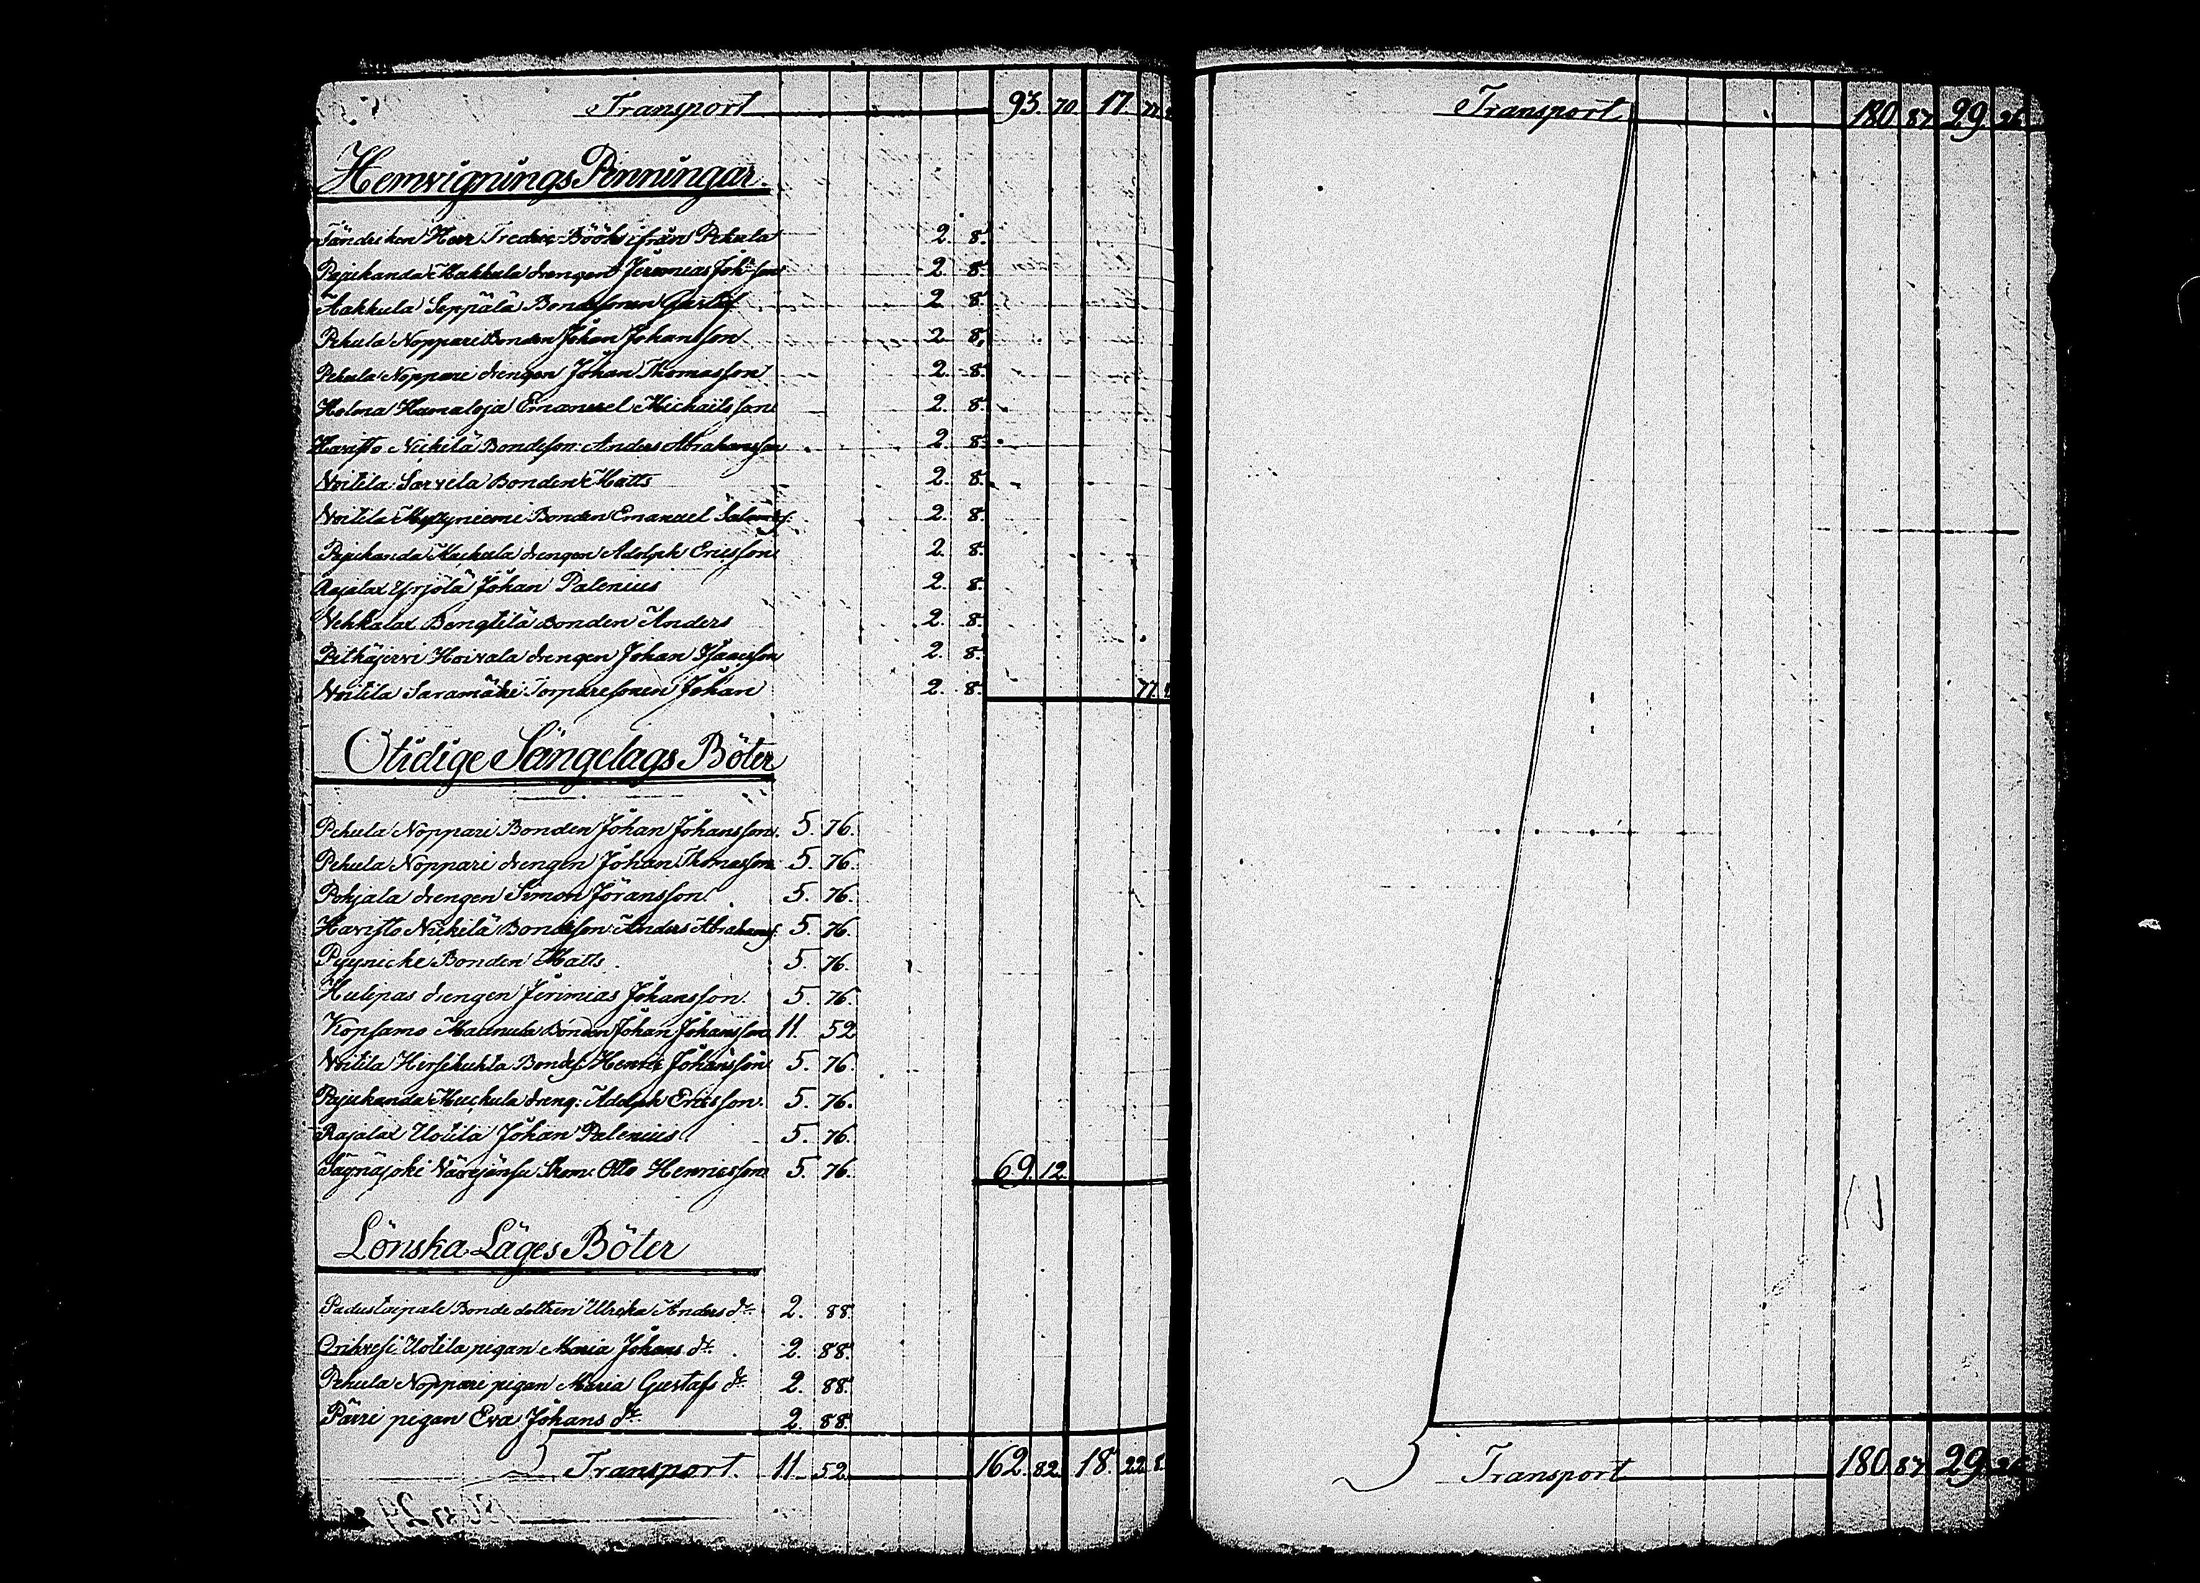 Transport 93. 70. 17. 77.
HemvigningsPenningar
Fändriken Herr Fredric Böök ifrån Pehula 2. 8.
Pajukanda Hakkula drengen Jeremias Joh:sson 2 8.
Hakkula Seppälä Bondesonen Gustaf 2 8.
Pehula Noppari Bonden Johan Johansson 2 8.
Pehula Noppari drengen Johan Thomasson 2. 8.
Holma Hamaloja Emanuel Michailsson 2. 8.
Havisto Nickilä Bondeson: Anders Abrahamsson 2. 8.
Voitila Sarvela Bonden Matts 2. 8.
Voitila Myllyniemi Bonden Emanuel 2. 8.
Pajukanda Muckula drengen Adolph Ericsson 2. 8.
Rajalax Yrjölä Johan Palenius 2. 8.
Vehkalax Bengtilä Bonden Anders 2. 8.
Pitkäjervi Hoivala drengen Johan Isaacsson 2. 8.
Voitila Saramäki Torparesonen Johan 2. 8. 77.
Otidige Sängelags Böter
Pehula Noppari Bonden Johan Johansson. 5. 76.
Pehula Noppari drengen Johan Thomasson 5. 76.
Pohjala drengen Simon Jöransson. 5. 76.
Havisto Nickilä Bondeson: Anders Abrahams. 5. 76.
Pyynicke Bonden Matts. 5. 76.
Hulipas drengen Jerimias Johansson. 5. 76.
Kopsamo Maunula Bonden Johan Johansson 11. 52
Voitila Hirsikukta Bonds: Henric Johansson 5. 76.
Pajukanda Muckula dreng: Adolph Ericsson. 5. 76.
Rajalax Uotila Johan Palenius 5. 76.
Otto Henricsson 5. 76. 69. 12.
Lönska Läges Böter
Padustaipale Bonde dottren Ulrika Anders dr 2. 88.
Orihvesi Uotila pigan Maria Johans dr. 2. 88.
Pehula Noppari pigan Maria Gustafs dr 2. 88.
Pärri pigan Eva Johans dr. 2. 88.
Transport. 11. 52. 162. 82. 18. 22. 8.
Transport 180. 87. 29. 26.
Transport 180. 87. 29. 26.